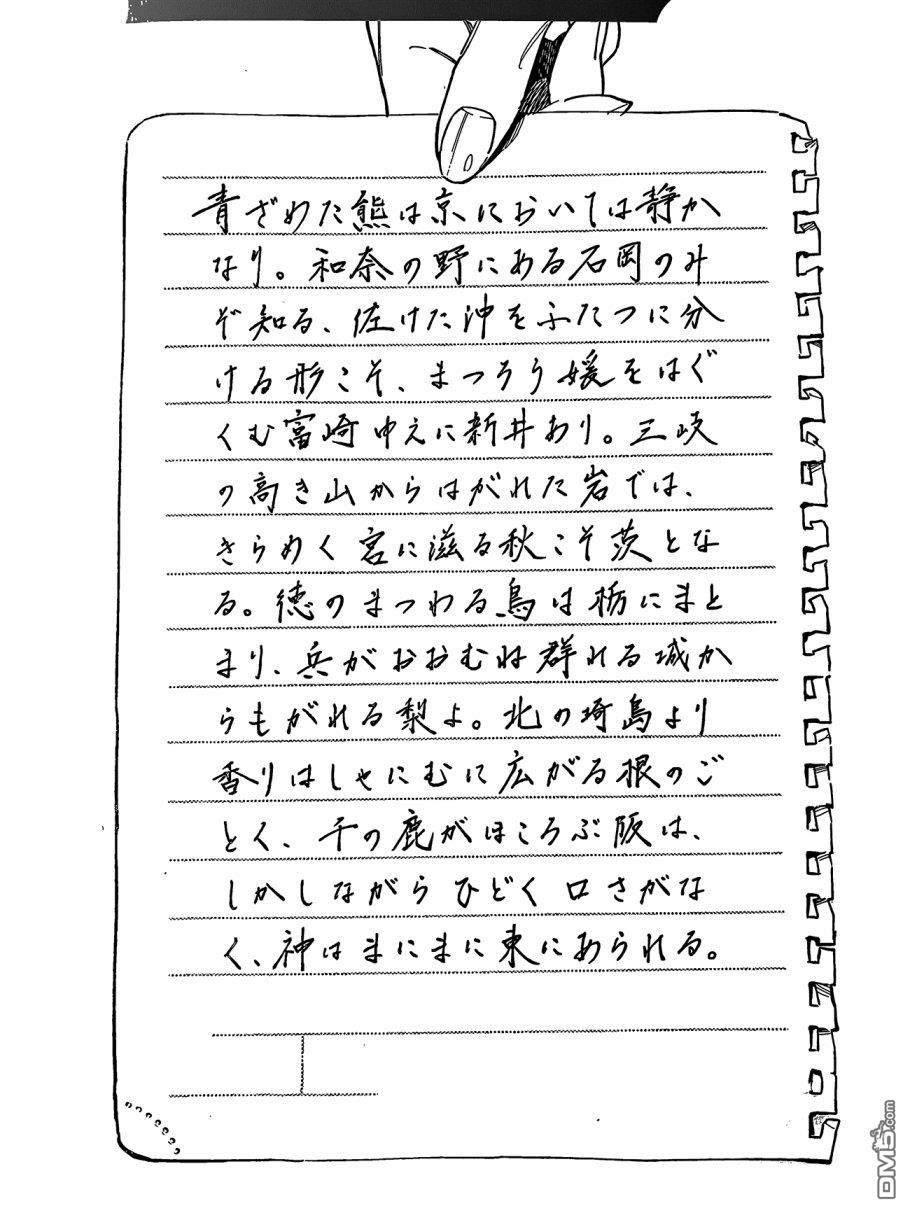 青ざめた熊は京においては静か
なり。和奈の野にある石岡のみ
ぞ知る、佐けた沖をふたつに分
ける形こそ、まつろう媛をはぐ
くむ富崎ゆえに新井あり。三岐
の高き山からはがれた岩では、
きらめく宮に滋る秋こそ茨とな
る。徳のまつわる鳥は栃にまと
まり、兵がおおむね群れる城か
らもがれる梨よ。北の埼島より
香りはしゃにむに広がる根のご
とく、千の鹿がほころぶ阪は、
しかしながらひどく口さがな
く、神はまにまに東にあられる。
DM5.com